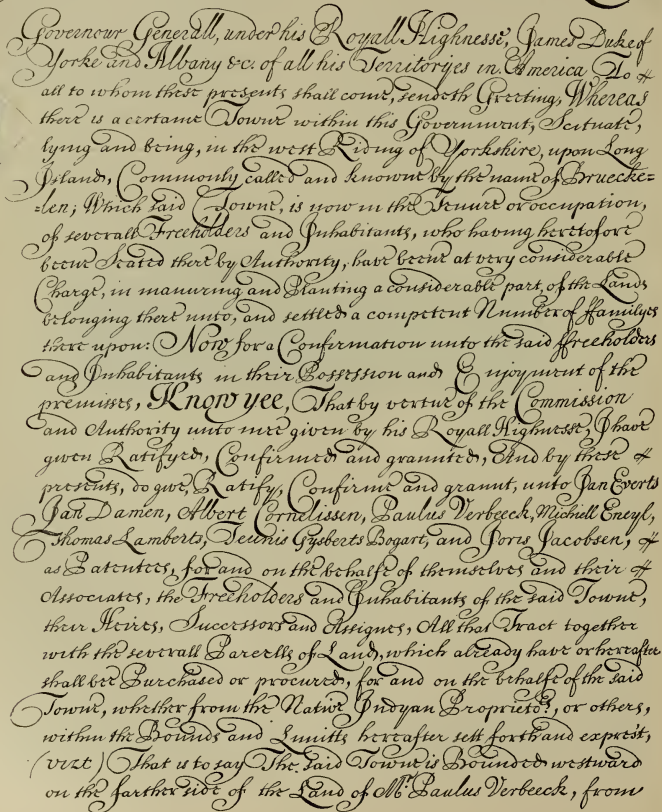 Governour Generall, under his Royall Highnesse, James Duke of
Yorke and Albany &c. of all his Territoryes in America To
all to whom these presents shall come, sendeth Greeting, Whereas
there is a certaine Towne within this Government, Scituate,
lying and being, in the west Riding of Yorkshire, upon Long
Island, Commonly called and knowne by the name of Bruecke=
=len; Which said Towne, is now in the Tenure or occupation,
of severall Freeholders and Inhabitants, who having heretofore
beene Seated there by Authority, have beene at very considerable
Charge, in manuring and Planting a considerable part, of the Lands
belonging there unto, and settled a competent Number of ffamilyes
there upon: Now for a Confirmation unto the said ffreeholders
and Inhabitants in their Possession and Enjoyment of the
premisses, Know yee, That by vertue of the Commission
and Authority unto mee given by his Royall Highnesse, I have
given Ratifyed, Confirmed and graunted, And by these
presents, do give, Ratify, Confirme and graunt, unto Jan Everts
Jan Damen, Albert Cornelissen, Paulus Verbeeck, Michiell Eneyl,
Thomas Lamberts, Teunis Gysberts Bogart, and Joris Jacobsen,
as Patentees, for and on the behalfe of themselves and their
Associates, the Freeholders and Inhabitants of the said Towne,
their Heires, Successors and Assignes, All that Tract together
with the severall Parcells of Land, which already have or hereafter
shall bee Purchased or procured, for and on the behalfe of the said
Towne, whether from the Native Indyan Proprieto.rs, or others,
within the Bounds and Limitts hereafter sett forth and exprest,
(vizt) That is to say The said Towne is Bounded westward
on the farther side of the Land of Mr. Paulus Verbeeck, from